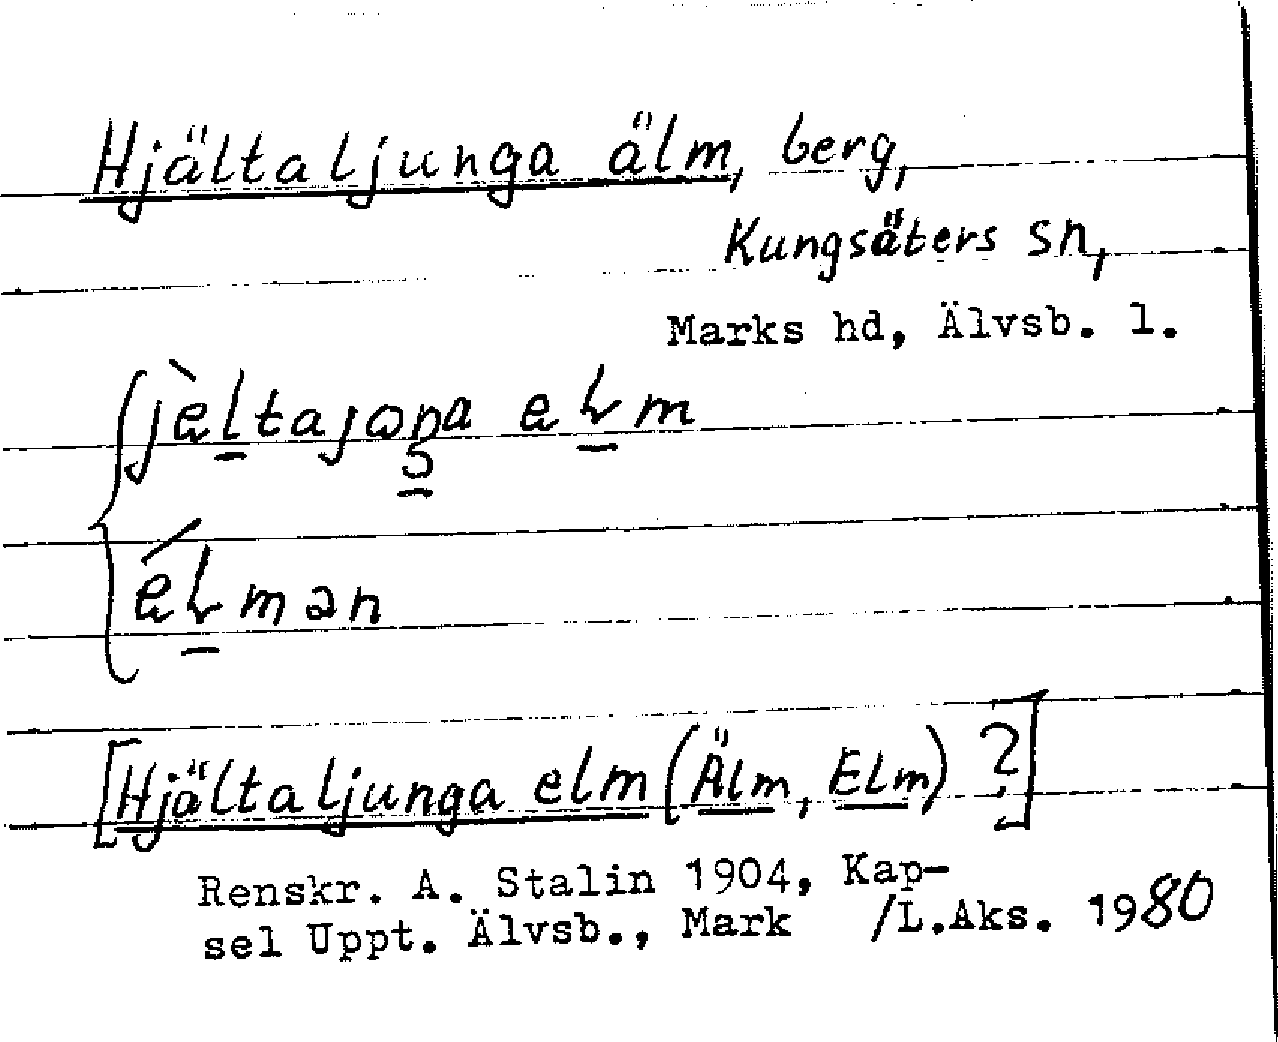 Hjälta ljunga älm, berg,
Kungsäters sn,
Marks hd, Älvsb. l.
jèltajoŋa elm
élman
[Hjälta ljunga elm (Älm, Elm) ?]
Renskr. A. Stalin 1904, Kap-
sel Uppt. Älvsb., Mark /L.Aks. 1980